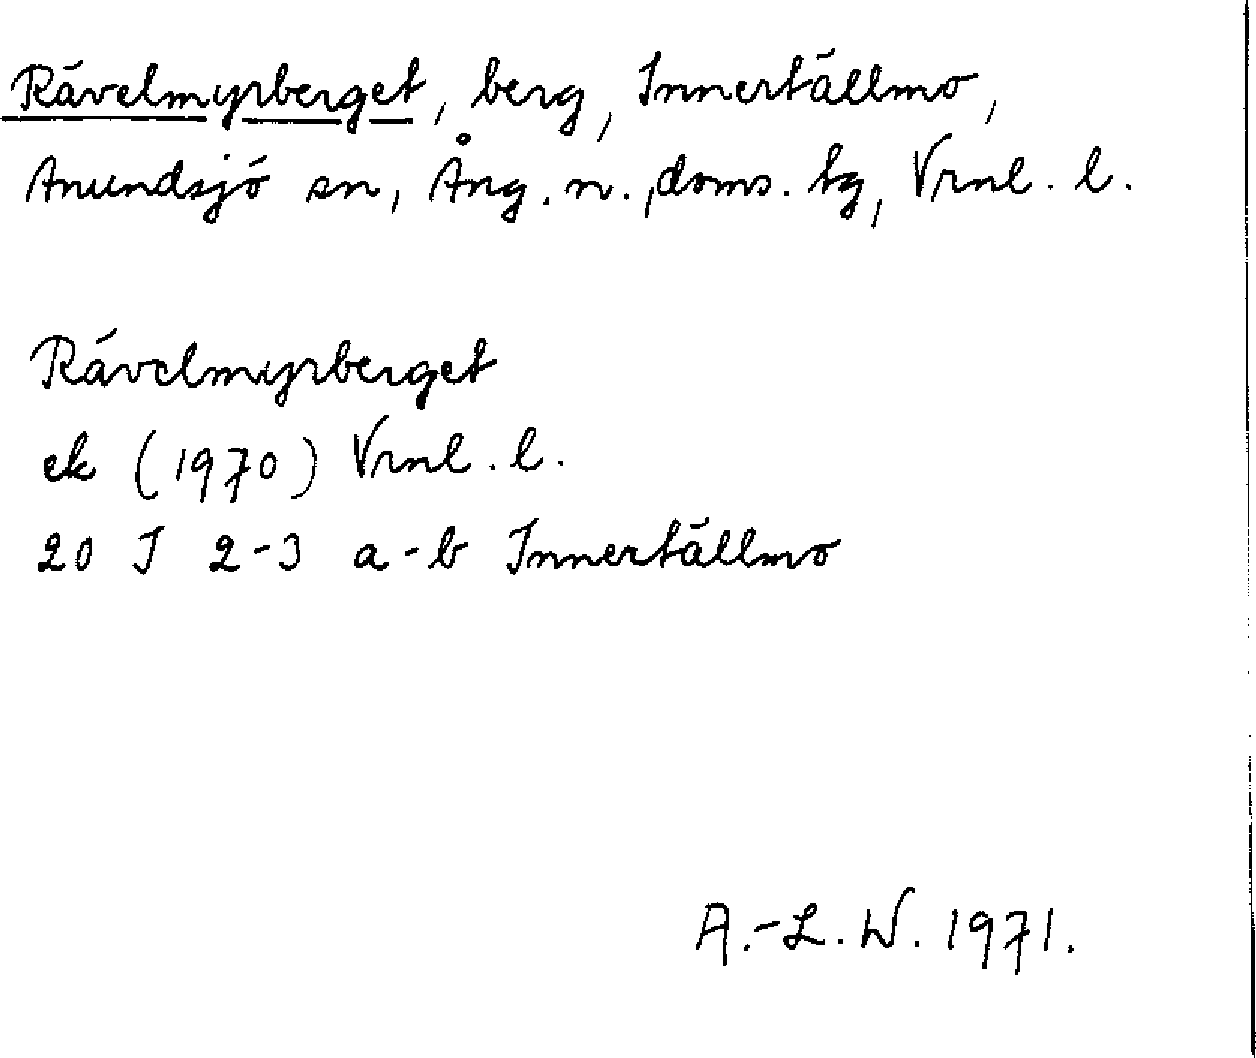 Rävelmyrberget, berg, Innertällmo,
Anundsjö sn, Ång. n., doms. tg, Vrnl. l.
Rävelmyrberget
ek (1970) Vrnl. l.
20 I 2-3 a-b Innertällmo
A.-L. W. 1971.